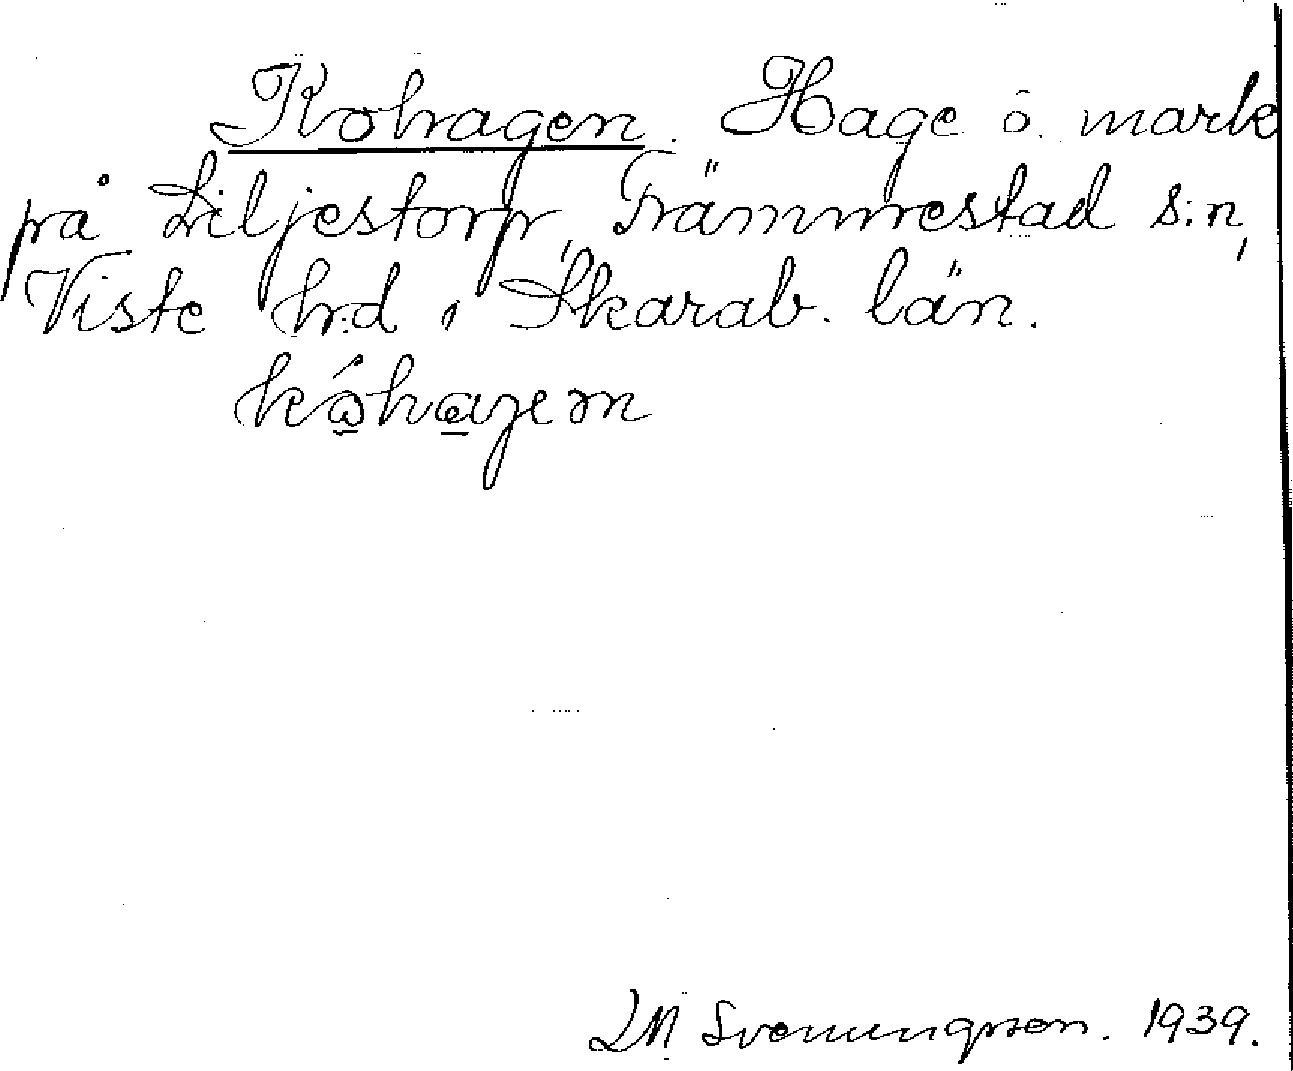 Kohagen. Hage o. mark
på Liljestorp, Främmestad s:n,
Viste h:d, Skarab. län.
kóhagen
LM Svenungsson. 1939.